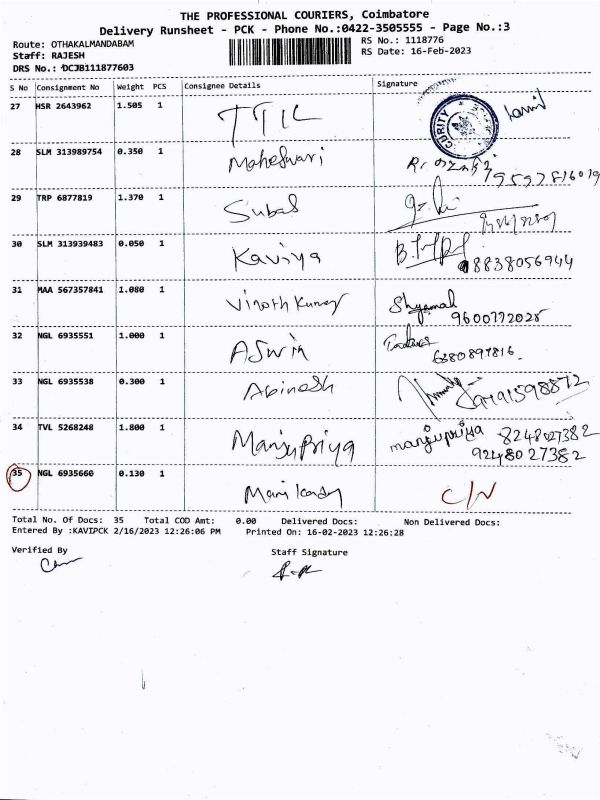 THE PROFESSIONAL COURIERS, Coimbatore
Delivery Runsheet - PCK - Phone No.:0422-3505555 - Page No.:3
Route: OTHAKALMANDABAM RS No.: 1118776
Staff: RAJESH RS Date: 16-Feb-2023
DRS No.: DCJB111877603
S No Consignment No Weight PCS Consignee Details Signature
27 HSR 2643962 1.505 1 TTK
CURITY
28 SLM 313989754 0.350 1 Maheswari
29 TRP 6877819 1.370 1 Subas
30 SLM 313939483 0.050 1 Kaviya
8838056944
31 MAA 567357841 1.080 1 Vinothkumar Shyamal
9600772025
32 NGL 6935551 1.000 1 ASwin
6380897816
33 NGL 6935538 0.300 1 Abinesh
34 TVL 5268248 1.800 1 Manjupriya manjupriya 8248027382
9248027382
35 NGL 6935660 0.130 1 Manikandy C/N
Total No. Of Docs: 35 Total COD Amt: 0.00 Delivered Docs: Non Delivered Docs:
Entered By :KAVIPCK 2/16/2023 12:26:06 PM Printed On: 16-02-2023 12:26:28
Verified By Staff Signature